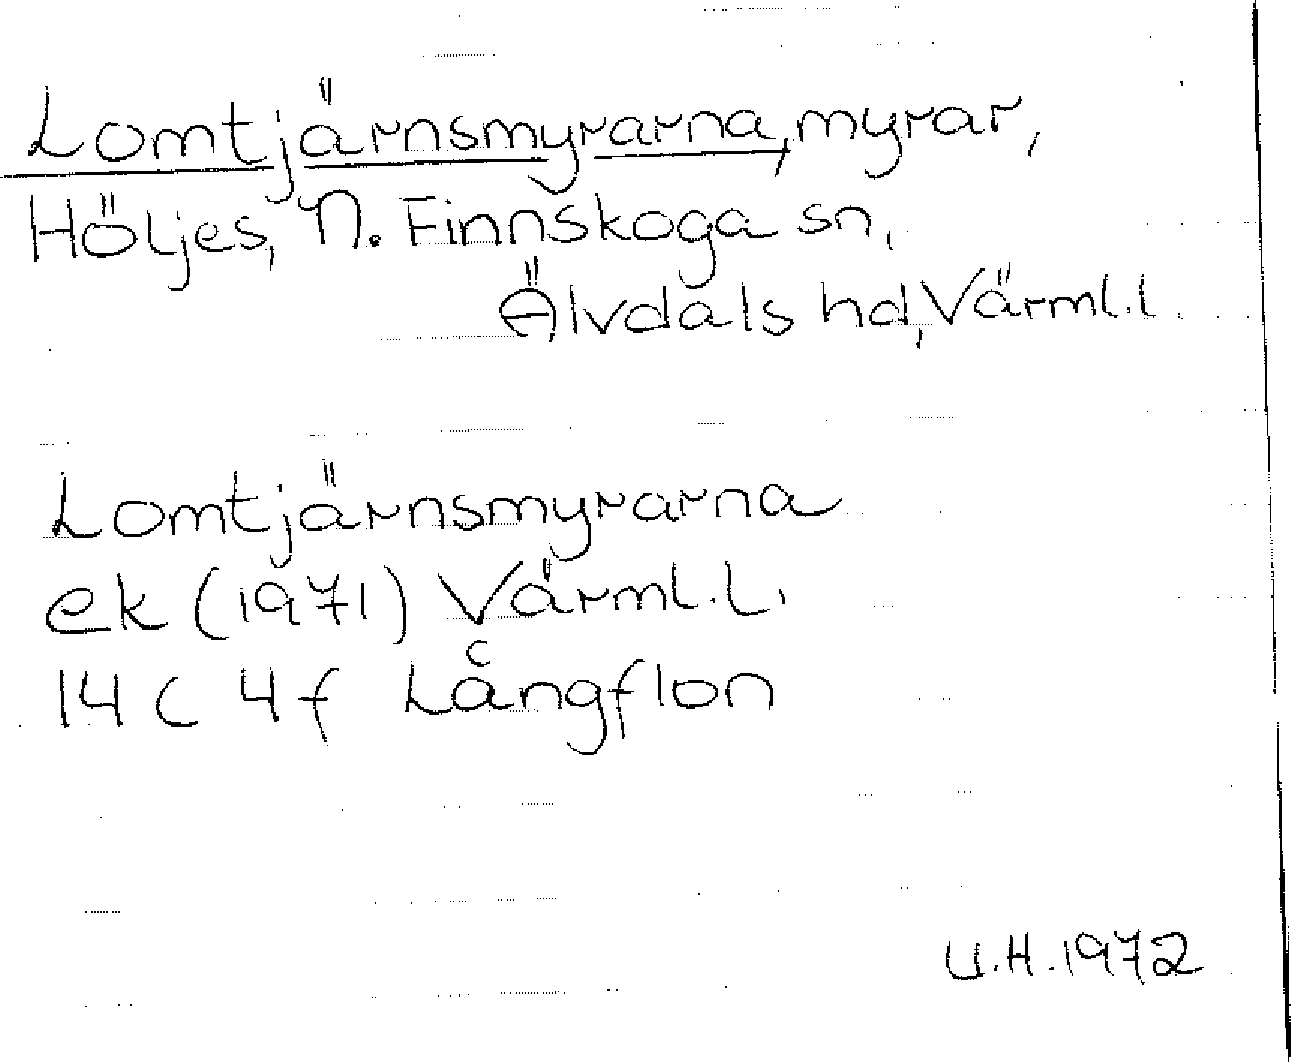 Lomtjärnsmyrarna, myrar,
Höljes, N. Finnskoga sn,
Älvdals hd, Värml.l.
Lomtjärnsmyrarna
ek (1971) Värml.L.
14 C 4 f Långflon
U.H. 1972